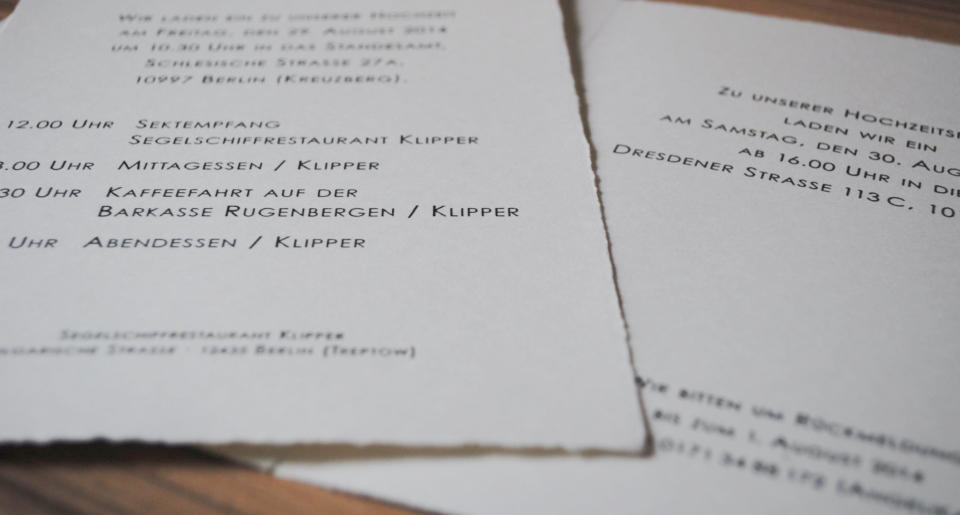 Wir laden ein zu unserer Hochzeit
am Freitag, den 29. August 2014
um 10.30 Uhr in das Standesamt,
Schlesische Strasse 27A,
10997 Berlin (Kreuzberg).
12.00 Uhr Sektempfang
Segelschiffrestaurant Klipper
3.00 Uhr Mittagessen / Klipper
30 Uhr Kaffeefahrt auf der
Barkasse Rugenbergen / Klipper
Uhr Abendessen / Klipper
Segelschiffrestaurant Klipper
Strasse · 12435 Berlin (Treptow)
Zu unserer Hochzeits
laden wir ein
am Samstag, den 30. Aug
ab 16.00 Uhr in die
Dresdener Strasse 113 C, 10
Wir bitten um Rückmeldung
bis zum 1. August 2014
0171